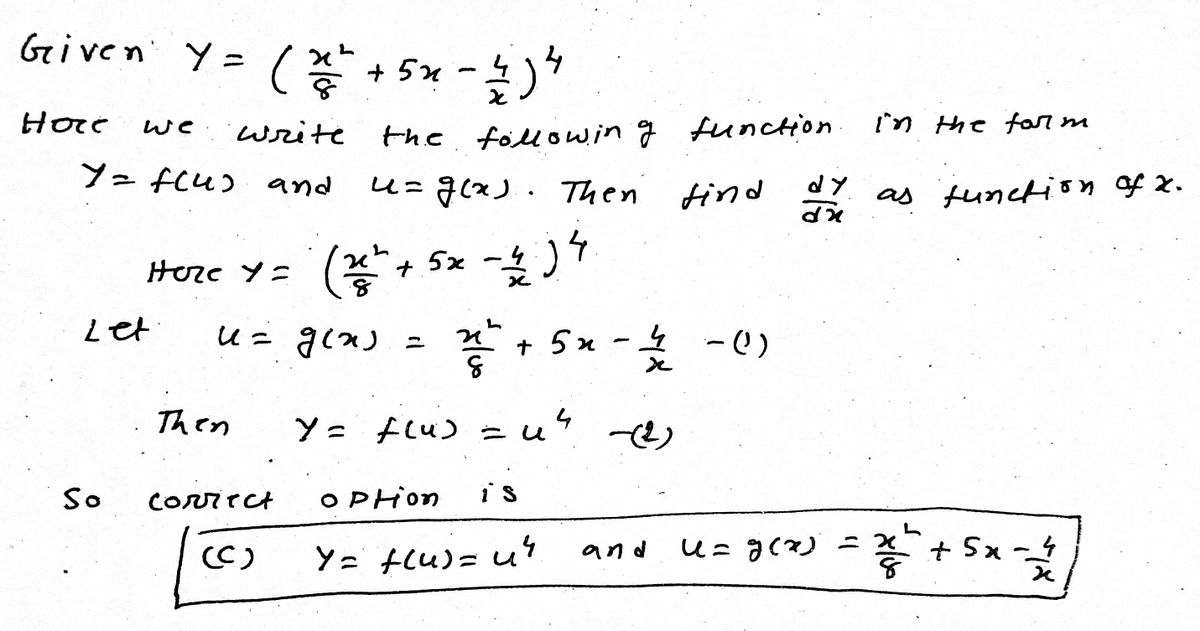 Given Y = ( x²/8 + 5x - 4/x )⁴
Here we write the following function in the form
Y = f(u) and u = g(x). Then find dY/dx as function of x.
Here Y = ( x²/8 + 5x - 4/x )⁴
Let u = g(x) = x²/8 + 5x - 4/x -(1)
Then Y = f(u) = u⁴ -(2)
So correct option is
(C) Y = f(u) = u⁴ and u = g(x) = x²/8 + 5x - 4/x